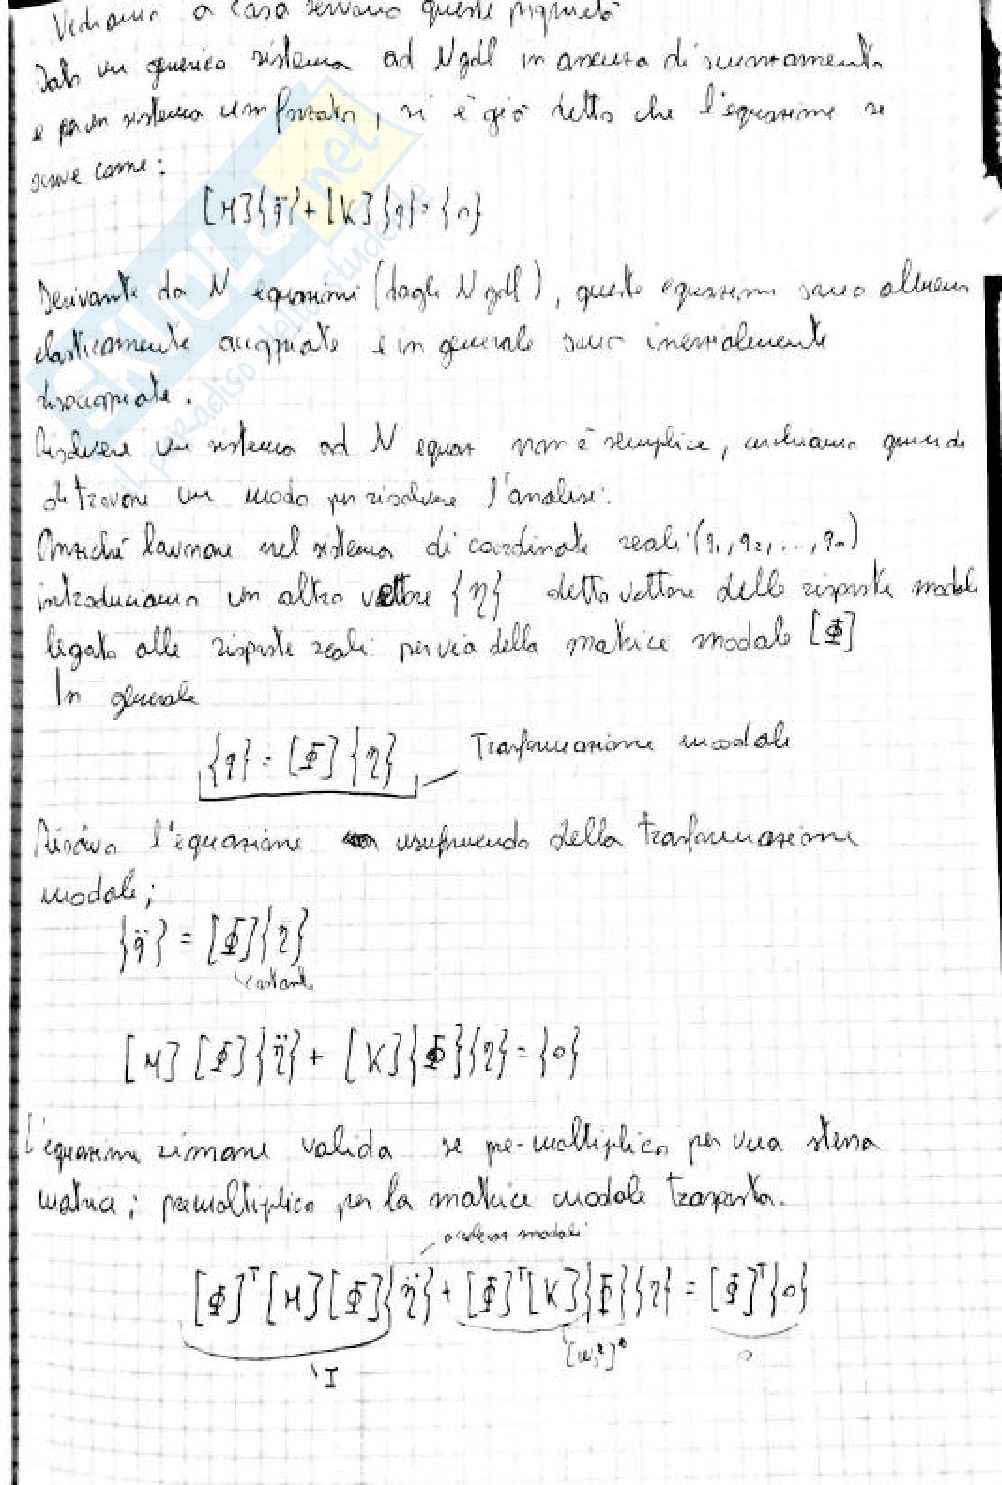 Vediamo a cosa servono queste proprietà
Dato un generico sistema ad N gdl in assenza di smorzamento
e per un sistema non forzato, si è già detto che l'equazione si
scrive come:
[M]{q̈}+[K]{q}={0}
Derivante da N equazioni (dagli N gdl), queste equazioni sono almeno
elasticamente accoppiate e in generale sono inerzialmente
disaccoppiate.
Risolvere un sistema ad N equaz non è semplice, cerchiamo quindi
di trovare un modo per risolvere l'analisi.
Anziché lavorare nel sistema di coordinate reali (q₁, q₂, ..., qₙ)
introduciamo un altro vettore {η} detto vettore delle risposte modali
legato alle risposte reali per via della matrice modale [Φ]
In generale
{q} = [Φ]{η} Trasformazione modale
Riscrivo l'equazione usufruendo della trasformazione
modale;
{q̈} = [Φ]{η̈}
costante
[M][Φ]{η̈} + [K]{Φ}{η} = {0}
L'equazione rimane valida se pre-moltiplico per una stessa
matrice; premoltiplico per la matrice modale trasposta.
modali
[Φ]ᵀ[M][Φ]{η̈} + [Φ]ᵀ[K]{Φ}{η} = [Φ]ᵀ{0}
I [ωᵢ²] 0